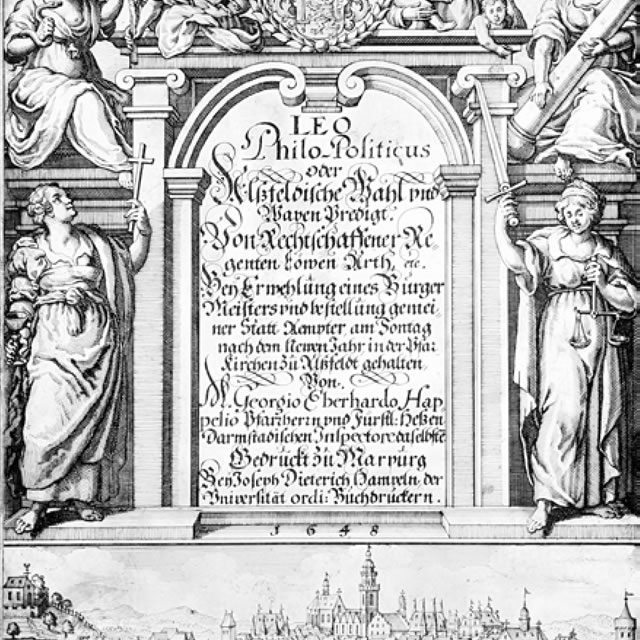 LEO
Philo-Politicus
oder
Alßfeldische Wahl vnd
Wapen Predigt.
Von Rechtschaffener Re-
genten Löwen Arth, etc.
Bey Erwehlung eines Bürger
Meisters vnd bestellung gemei-
ner Statt Aempter am Sontag
nach dem Newen Jahr in der Pfar
Kirchen zu Alßfeldt gehalten
Von.
M. Georgio Eberhardo Hap-
pelio Pfarherrn vnd Fürstl: Heßen
Darmstadischen Inspectore daselbste
Gedruckt zu Marpurg
Bey Joseph Dieterich Hampeln, der
Vniversität ordi: Buchdruckern.
1648